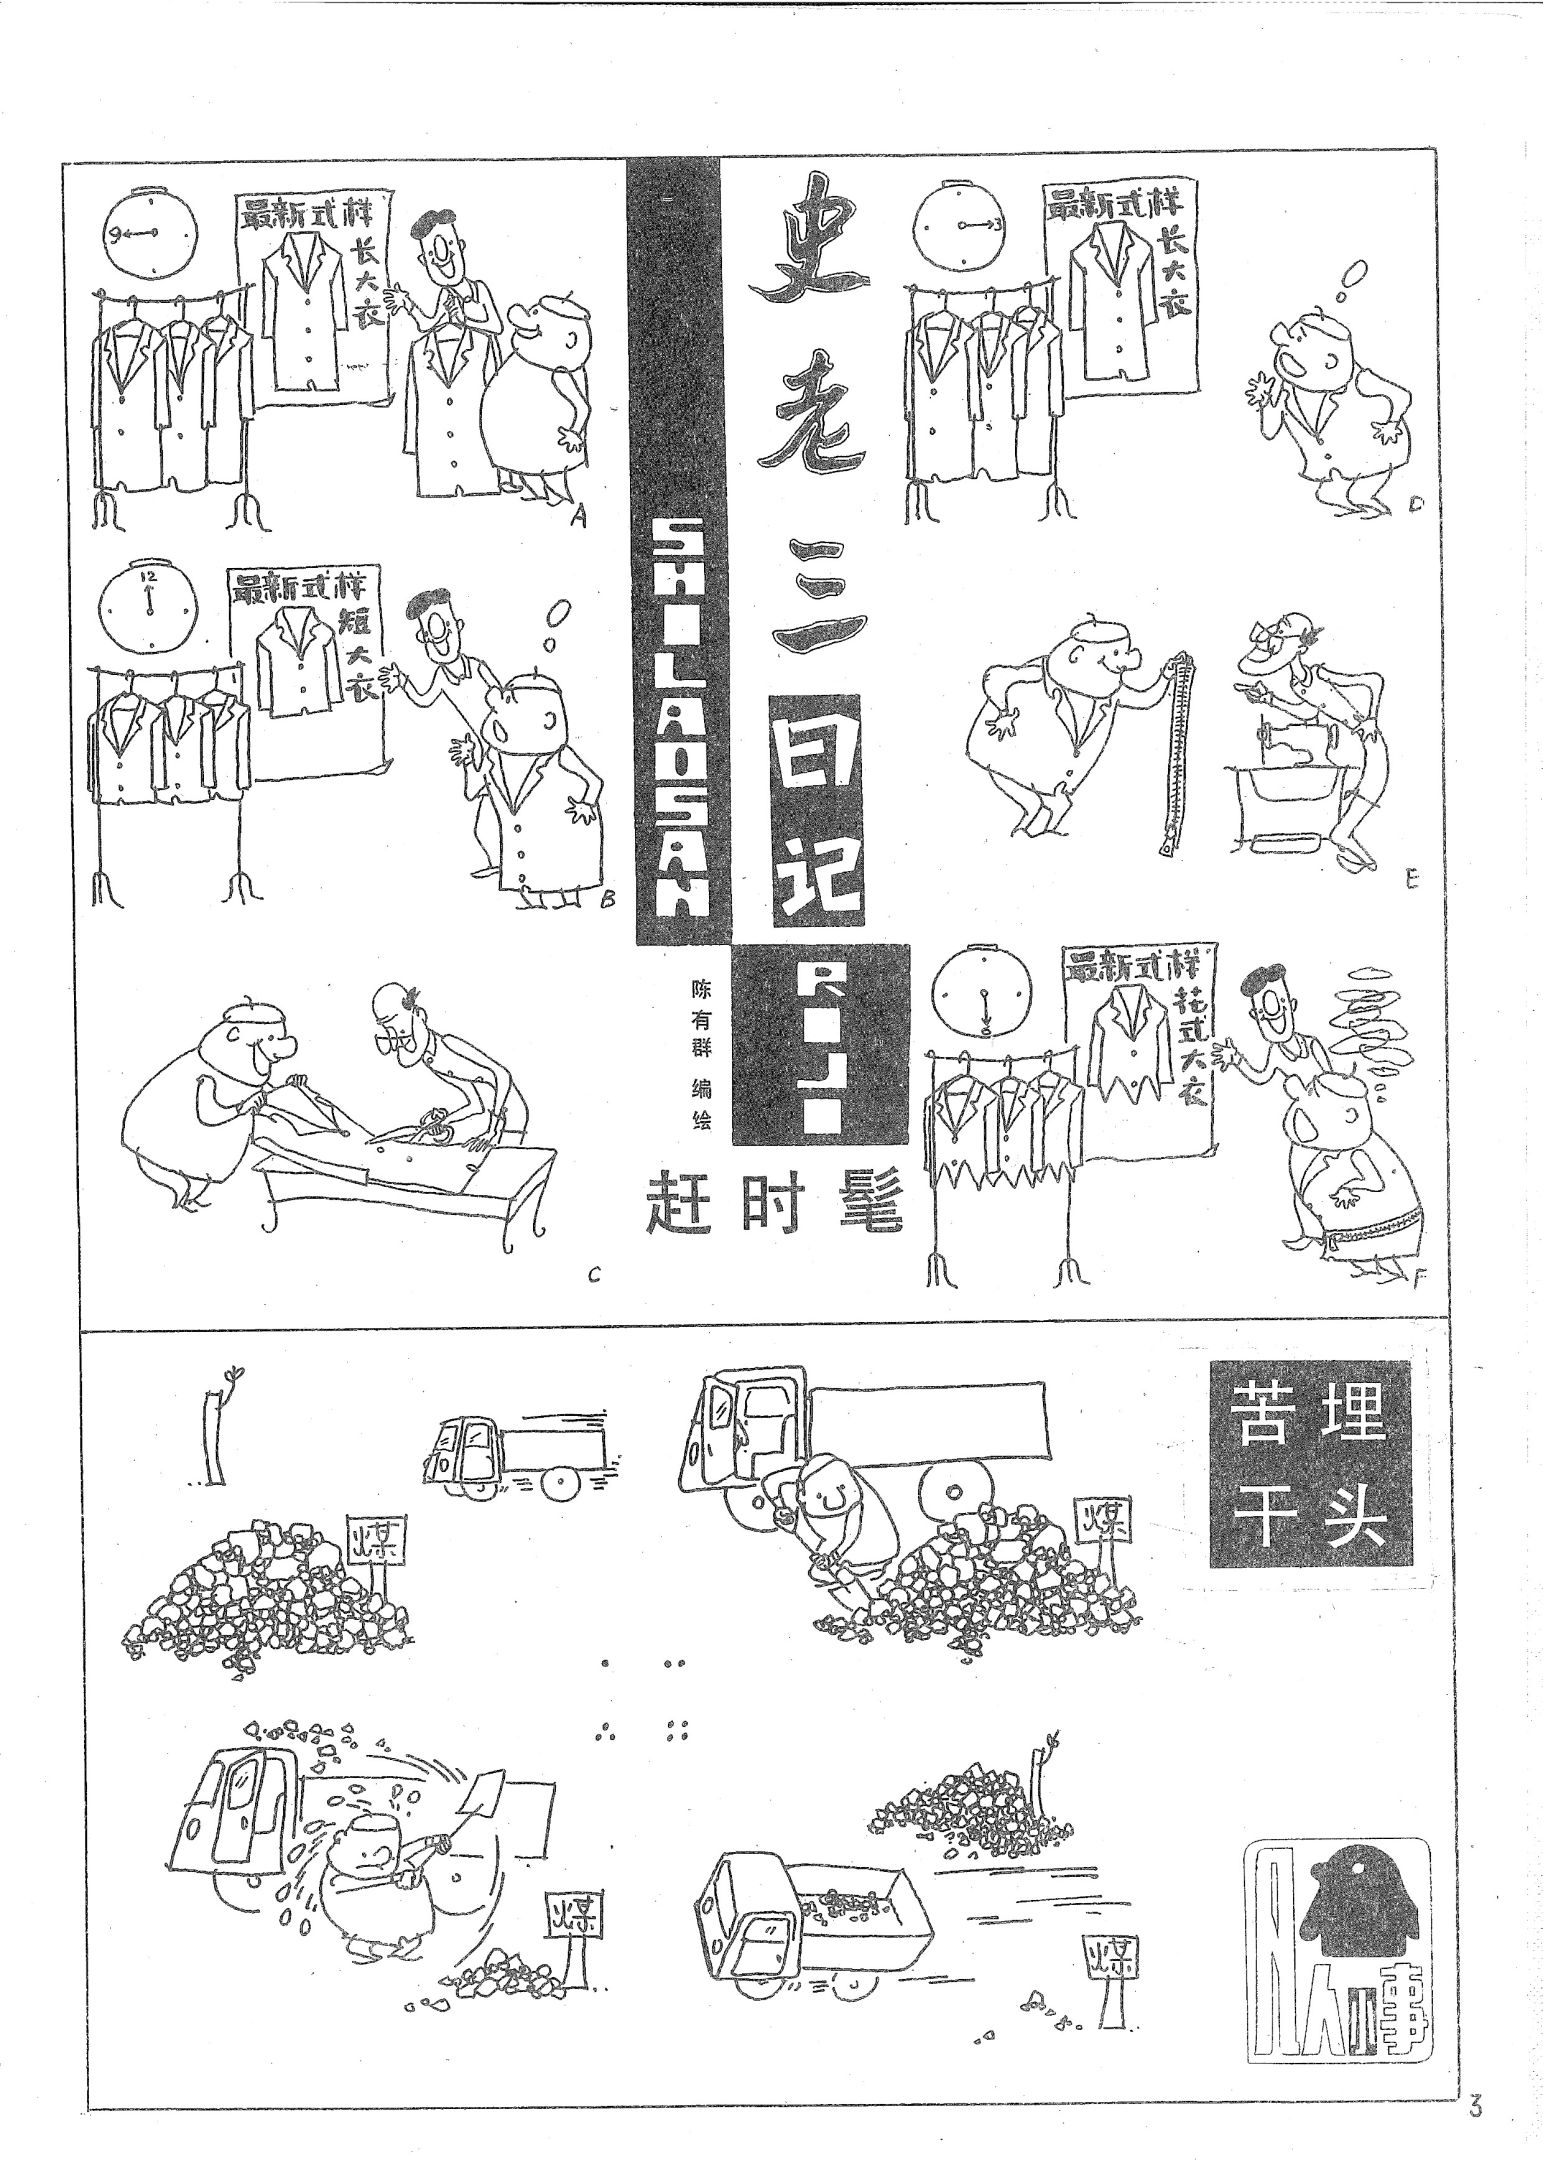 史老三
日记
SHILAOSAN
RIJI
陈有群 编绘
赶时髦
9
最新式样
长大衣
A
12
最新式样
短大衣
B
C
3
最新式样
长大衣
D
E
6
最新式样
花式大衣
F
埋头
苦干
煤
煤
煤
煤
凡人小事
3